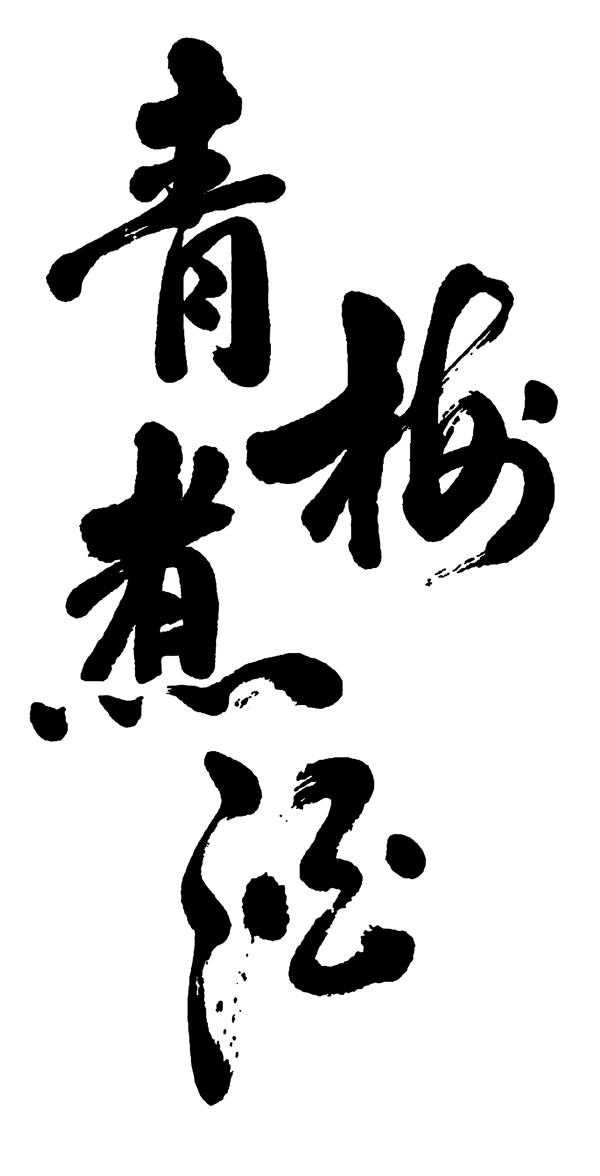 青梅煮酒